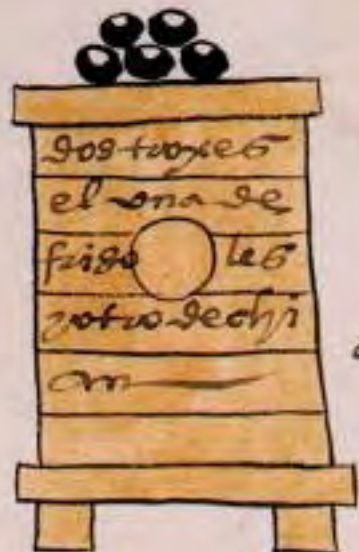 dos troxes
el una de
frigoles
y otro de chi
an